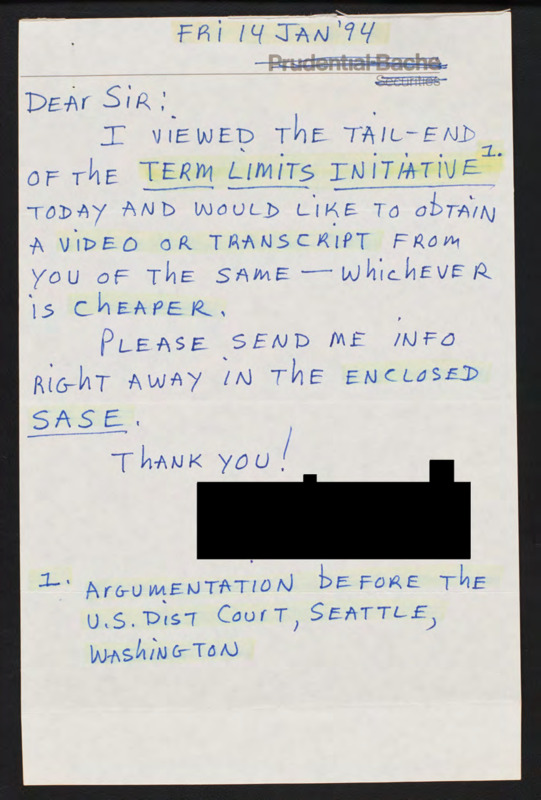 FRI 14 JAN '94
Prudential-Bache
Securities
DEAR SIR:
I VIEWED THE TAIL-END
OF THE TERM LIMITS INITIATIVE 1.
TODAY AND WOULD LIKE TO OBTAIN
A VIDEO OR TRANSCRIPT FROM
YOU OF THE SAME — WHICHEVER
IS CHEAPER.
PLEASE SEND ME INFO
RIGHT AWAY IN THE ENCLOSED
SASE.
THANK YOU!
1. ARGUMENTATION BEFORE THE
U.S. DIST COURT, SEATTLE,
WASHINGTON